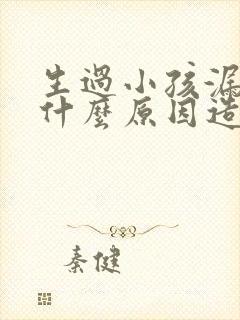 生過小孩漏
什麼原因造
秦健